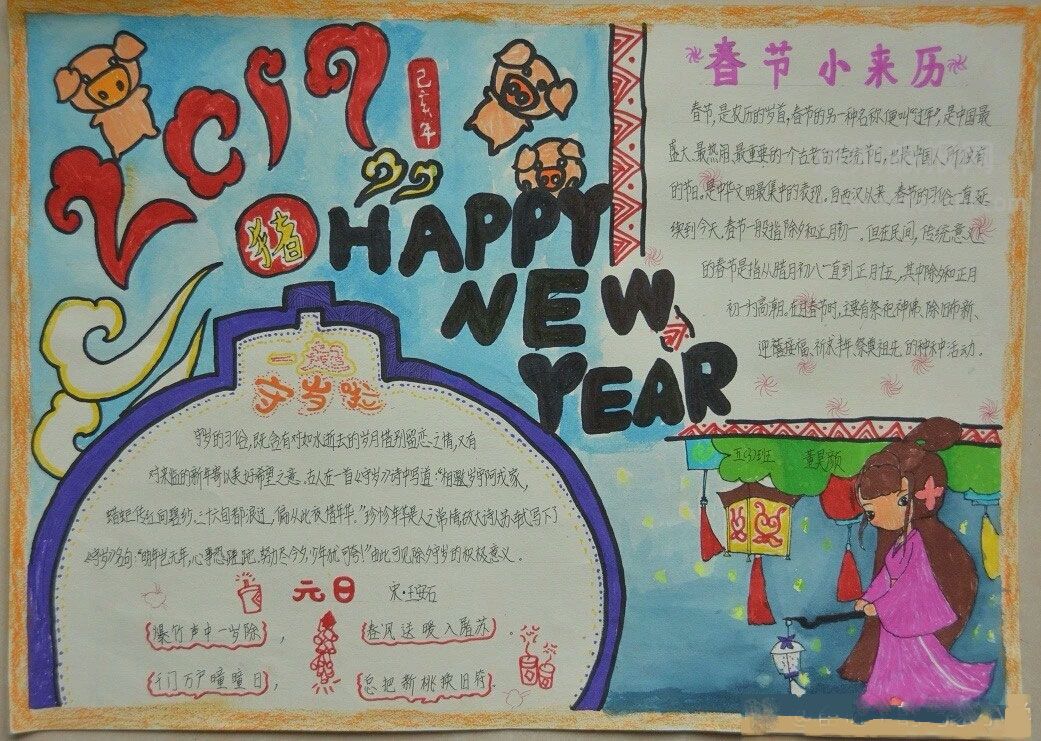 2019
己亥年
猪
HAPPY
NEW
YEAR
春节小来历
春节,是农历的岁首,春节的另一种名称便叫“过年”,是中国最
盛大、最热闹、最重要的一个古老的传统节日,也是中国人所
的节日。是中华文明最集中的表现。自西汉以来,春节的习俗一直延
续到今天。春节一般指除夕和正月初一。但在民间,传统意义
的春节是指从腊月初八一直到正月十五,其中除夕和正月
初一为高潮。在过春节时,主要有祭祀神佛、除旧布新、
迎禧接福、祈求丰年、祭奠祖先的种种活动。
一起
守岁吧
守岁的习俗,既含有对如水逝去的岁月惜别留恋之情,又有
对来临的新年寄以美好希望之意。古人在一首《守岁》诗中写道:“相邀守岁阿戎家,
蜡炬传红向碧纱,三十六旬都浪过,偏从此夜惜年华。”珍惜年华是人之常情,故大诗人苏轼写下了
《守岁》名句:“明年岂无年,心事恐蹉跎,努力尽今夕,少年犹可夸!”由此可见除夕守岁的积极意义。
元日
宋·王安石
爆竹声中一岁除,
春风送暖入屠苏.
千门万户曈曈日,
总把新桃换旧符.